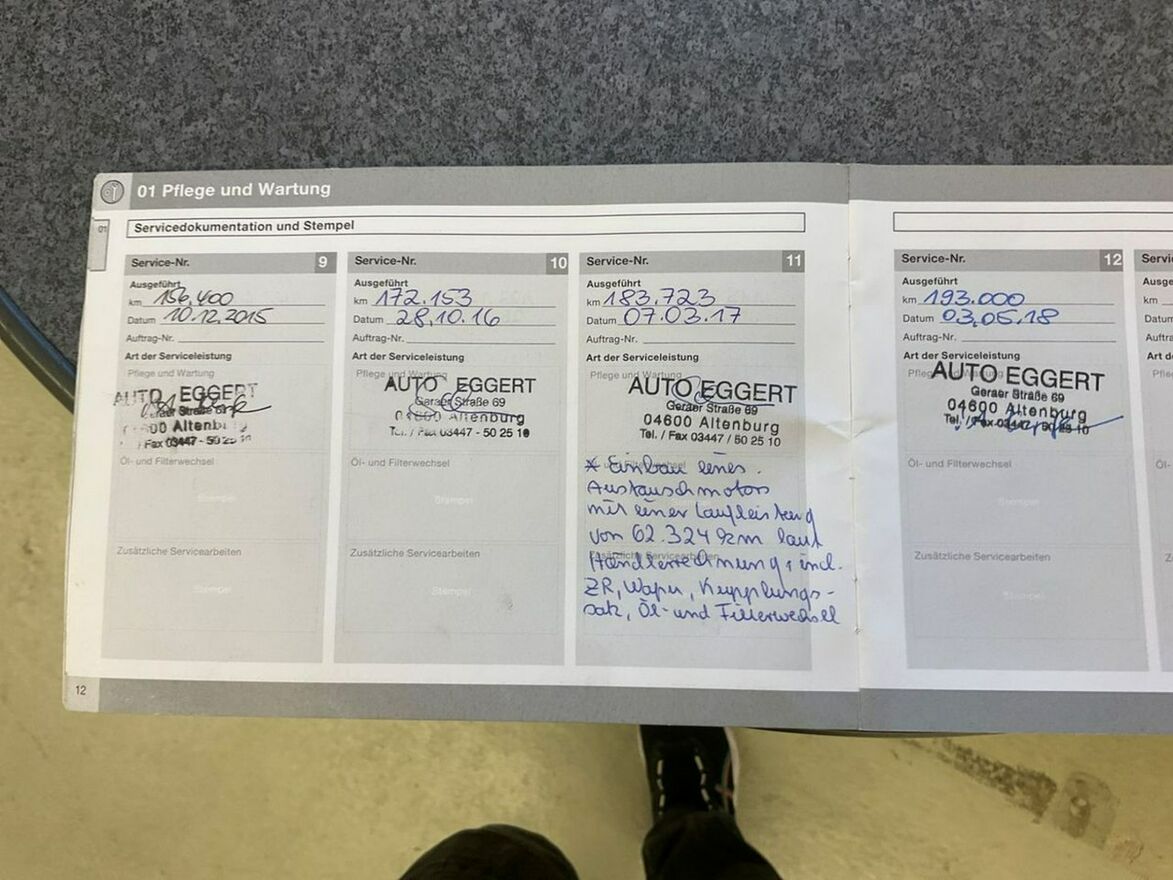 01 Pflege und Wartung
01
Servicedokumentation und Stempel
Service-Nr. 9
Ausgeführt
km 156.400
Datum 10.12.2015
Auftrag-Nr.
Art der Serviceleistung
Pflege und Wartung
AUTO EGGERT
Geraer Straße 69
00 Altenbu
/ Fax 03447 - 50 25 10
Öl- und Filterwechsel
Stempel
Zusätzliche Servicearbeiten
Stempel
Service-Nr. 10
Ausgeführt
km 172.153
Datum 28.10.16
Auftrag-Nr.
Art der Serviceleistung
Pflege und Wartung
AUTO EGGERT
Geraer Straße 69
04600 Altenburg
Tel. / Fax 03447 - 50 25 10
Öl- und Filterwechsel
Stempel
Zusätzliche Servicearbeiten
Stempel
Service-Nr. 11
Ausgeführt
km 183.723
Datum 07.03.17
Auftrag-Nr.
Art der Serviceleistung
Pflege und Wartung
AUTO EGGERT
Geraer Straße 69
04600 Altenburg
Tel. / Fax 03447 / 50 25 10
* Einbau eines
Austauschmotors
mit einer Laufleistung
von 62.324 km laut
Zusätzliche Servicearbeiten
Händlerrechnung, incl.
ZR, Wapu, Kupplungs-
satz, Öl- und Filterwechsel
Service-Nr. 12
Ausgeführt
km 193.000
Datum 03.05.18
Auftrag-Nr.
Art der Serviceleistung
AUTO EGGERT
Geraer Straße 69
04600 Altenburg
Tel. / Fax 03447 - 50 25 10
Öl- und Filterwechsel
Stempel
Zusätzliche Servicearbeiten
Stempel
Servi
Ausge
km
Datum
Auftra
Art de
Pfleg
Öl-
Z
12